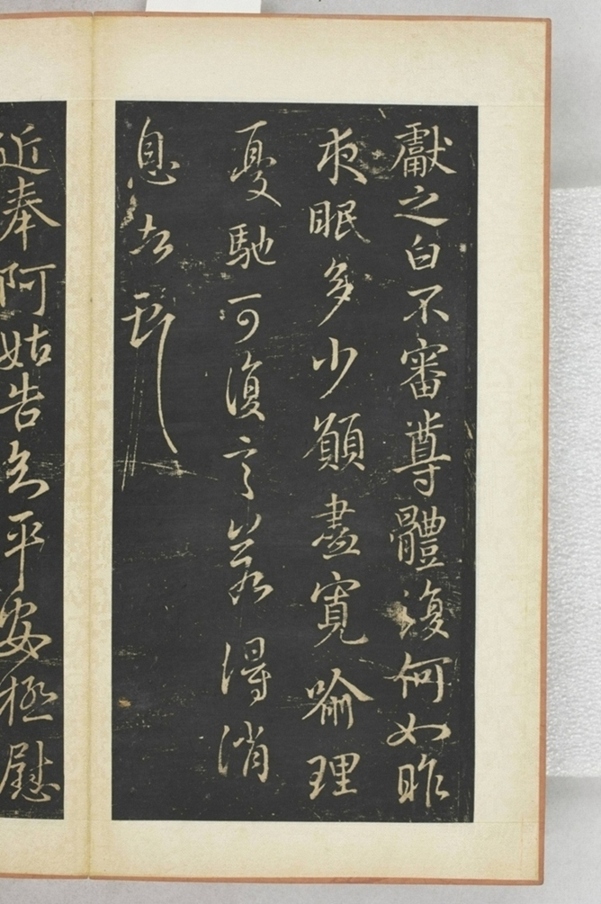 獻之白不審尊體復何如昨
夜眠多少願盡寬喻理
憂馳可復言若得消
息者
近奉阿姑告知平安極慰